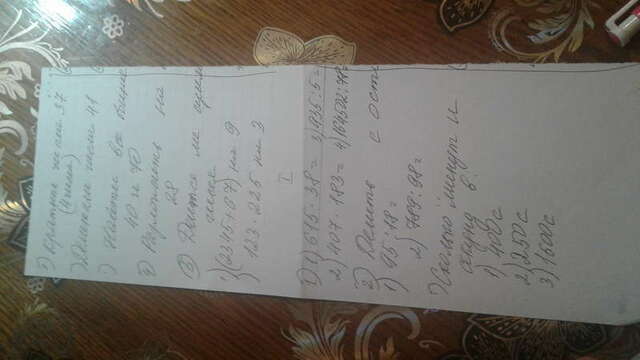 1) Кратные числа 37
(4 числа)
Делители числа 41
) Найти все общие
40 и 70
4) Разложить на
28
5) Делится ли сумма
чисел
1) (2345 + 07) на 9
123 · 225 на 3
I
1) 1) 615 · 38 = 3) 935 : 5 =
2) 407 · 183 = 4) 164502 : 78 =
2) Делить с оста
1) 95 : 18 =
2) 789 : 98 =
) Сколько минут и
секунд в
1) 400 с
2) 250 с
3) 1600 с